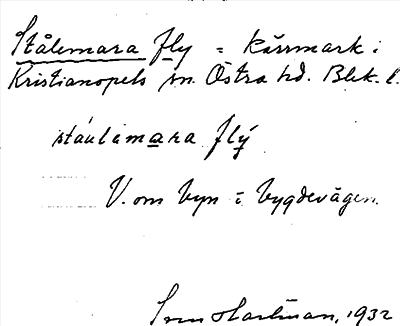 Stålemara fly = kärrmark i
Kristianopels sn. Östra hd. Blek. l.
ståulamara flý
V. om byn i bygdevägen.
Sven Hartman, 1932